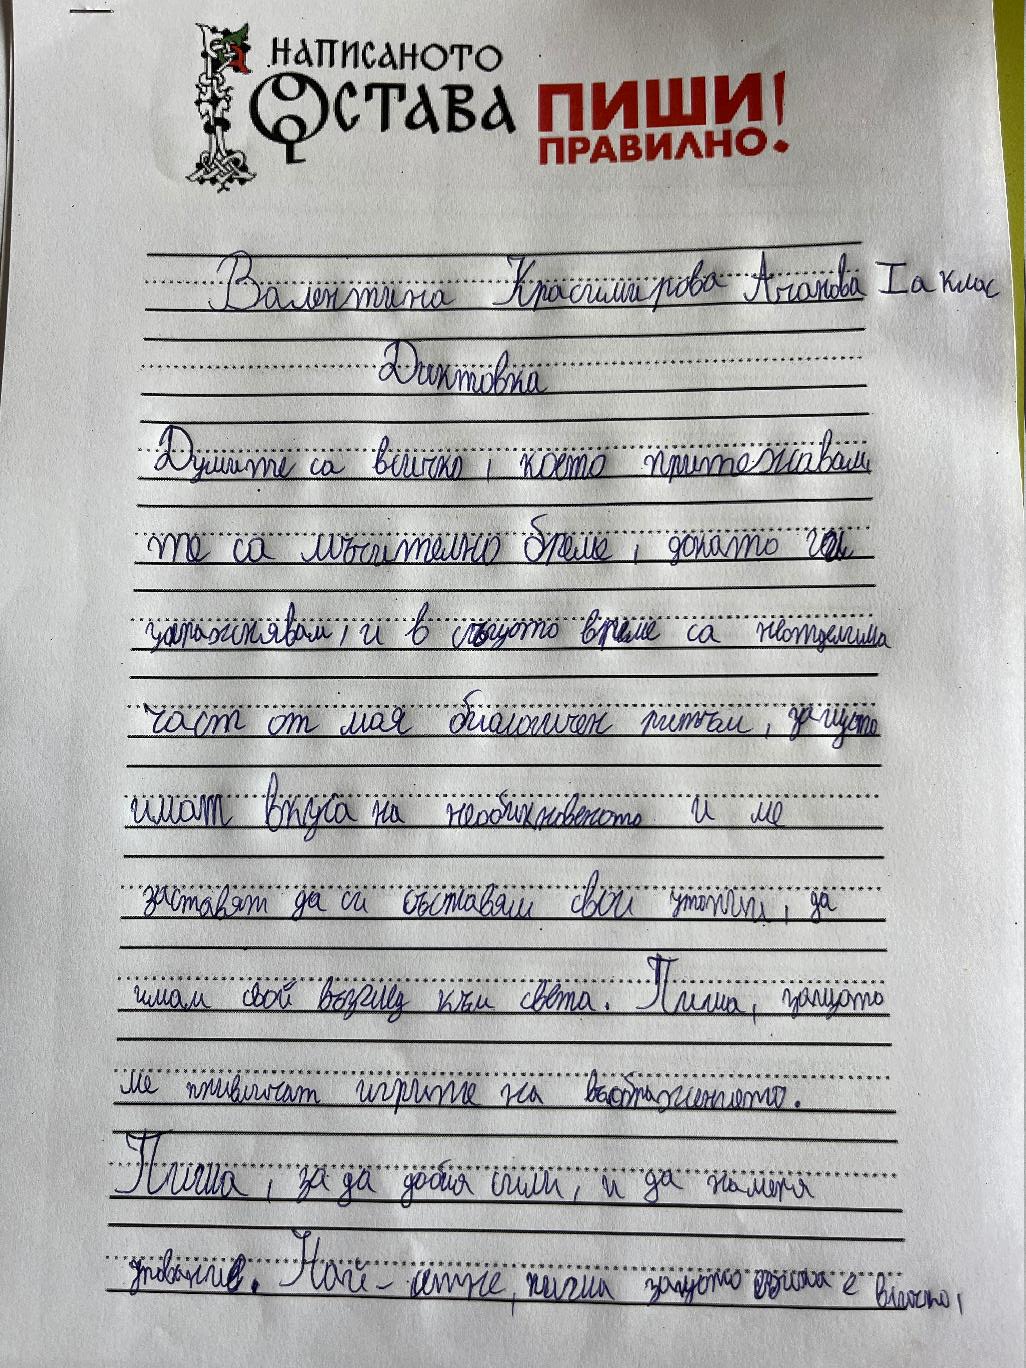 НАПИСАНОТО
ОСТАВА
ПИШИ
ПРАВИЛНО!
Валентина Красимирова Аханова Iа клас
Диктовка
Думите са всичко, което притежавам,
те са мъчително бреме, докато ги
упражнявам, и в същото време са неотделима
част от мая биологичен ритъм, защото
имат вкуса на необикновеното и ме
заставят да си съставям свои утопии, да
имам свой възглед към света. Пиша, защото
ме привличат игрите на въображението.
Пиша, за да добия сили, и да намеря
упование. Най-сетне, пиша защото езика е всичко,